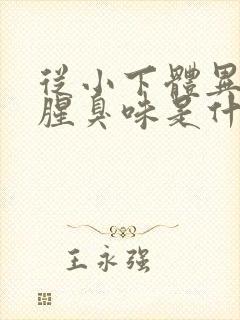 從小下體異
腥臭味是什
王永强